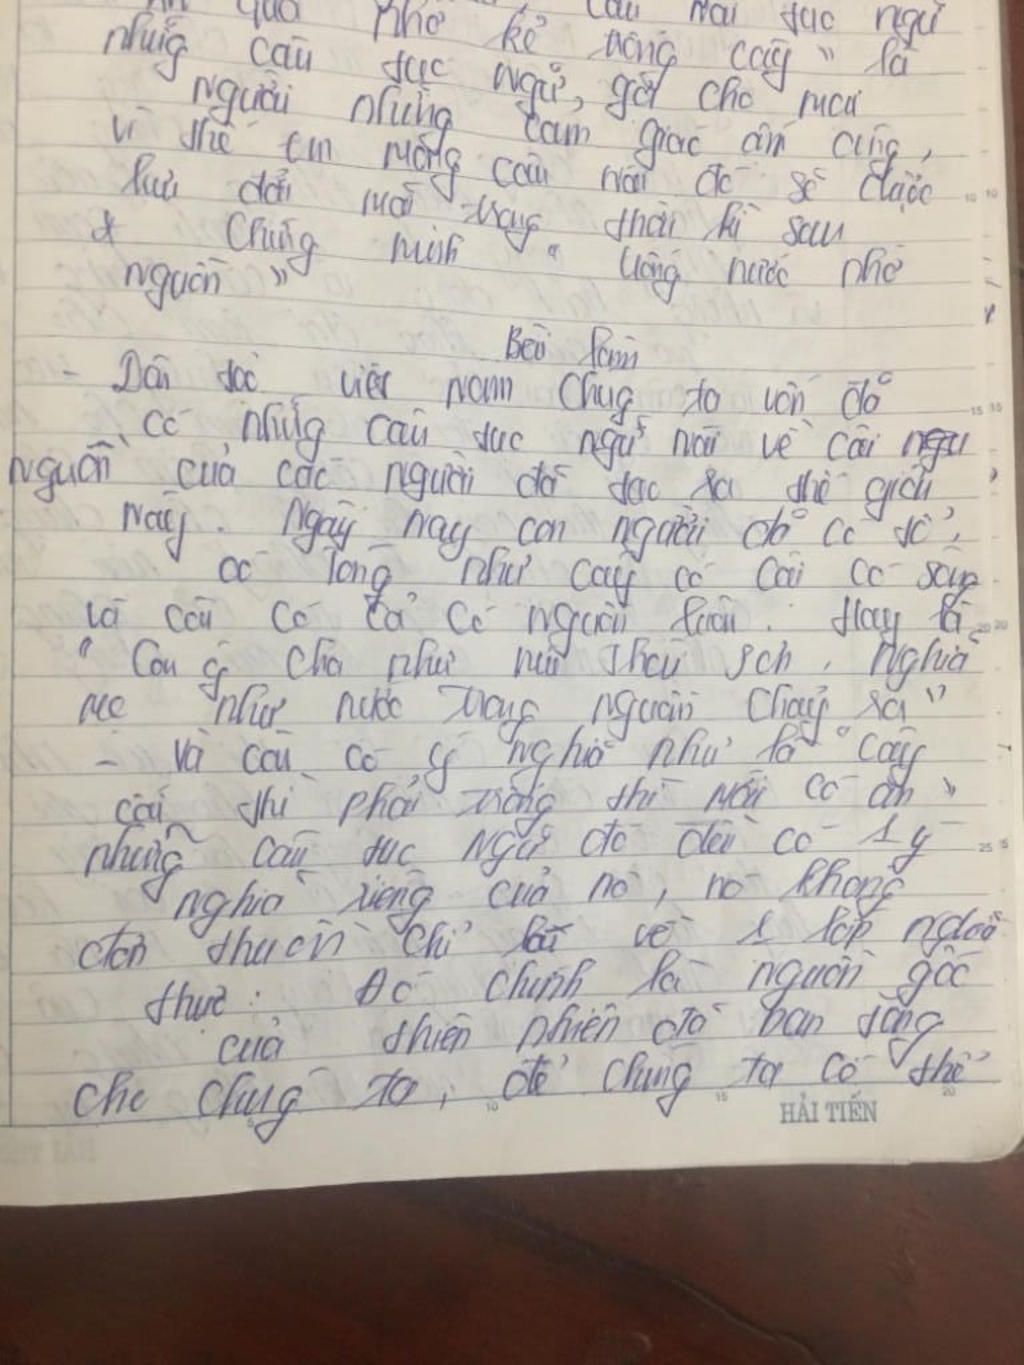 ăn quả nhớ kẻ trồng cây" là
những câu tục ngữ, gợi cho mọi
người những cảm giác ấm cúng,
vì thế em mong câu nói đó sẽ được
lưu dài mãi trong thời kì sau
* Chứng minh " Uống nước nhớ
nguồn "
Bài làm
- Dân tộc việt nam Chúg ta vốn đã
có những câu tục ngữ nói về cái ngu
nguồn của các người đã tạc ra thế giới
này. Ngày nay con người đã có tổ,
có tông như cây có cội có sông
và câu có cả có nguồn luôn. Hay là
" Công cha như núi thái sơn, Nghĩa
mẹ như nước trong nguồn Chảy ra"
- và câu có ý nghĩa như là "cây
cối thì phải trồng thì mới có ăn"
những câu tục ngữ đó đều có 1 ý
nghĩa riêng của nó, nó không
đơn thuần chỉ là về 1 lớp
thực: Đó chính là nguồn gốc
của thiên nhiên đã ban tặng
cho chúng ta, để chúng ta có thể
HẢI TIẾN